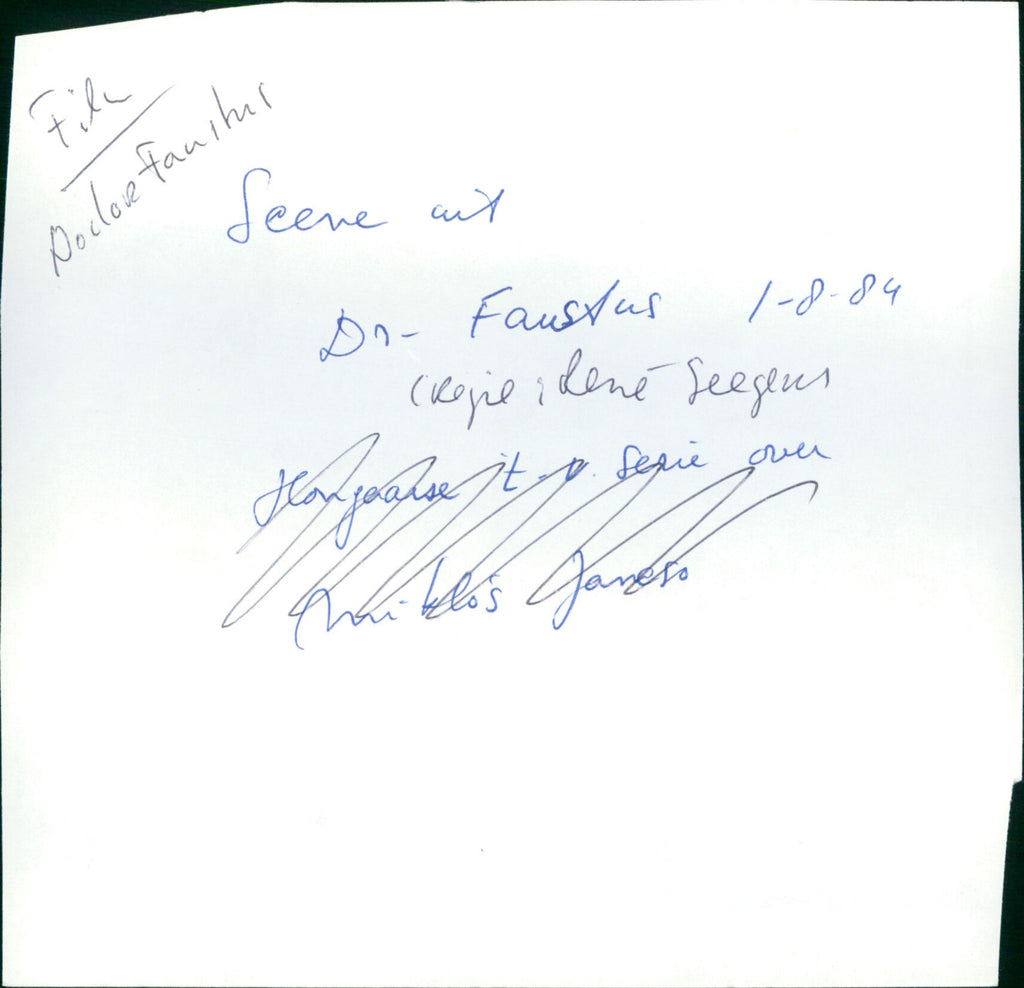 Film
Doctor Faustus
Scene uit
Dr- Faustus 1-8-84
(Regie: René Seegers
Hongaarse t.v. serie over
Miklós Jancso